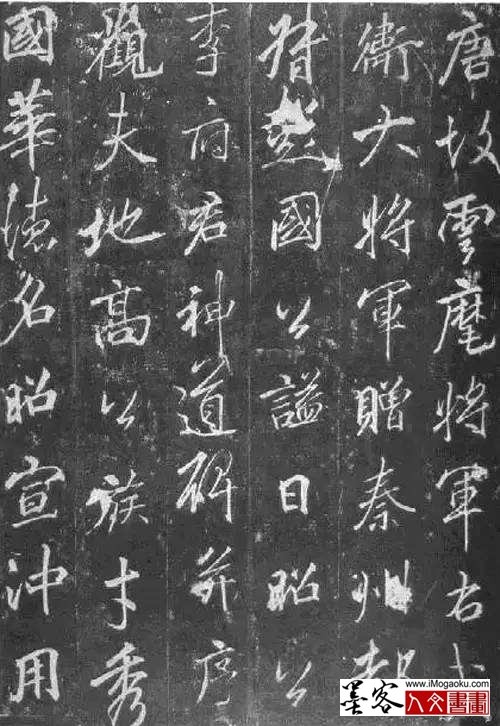 唐故雲麾將軍右武
衛大將軍贈秦州都
督彭國公謚曰昭公
李府君神道碑并序
觀夫地高公族才秀
國華德名昭宣沖用
www.iMogaoku.com
墨客人文書畫